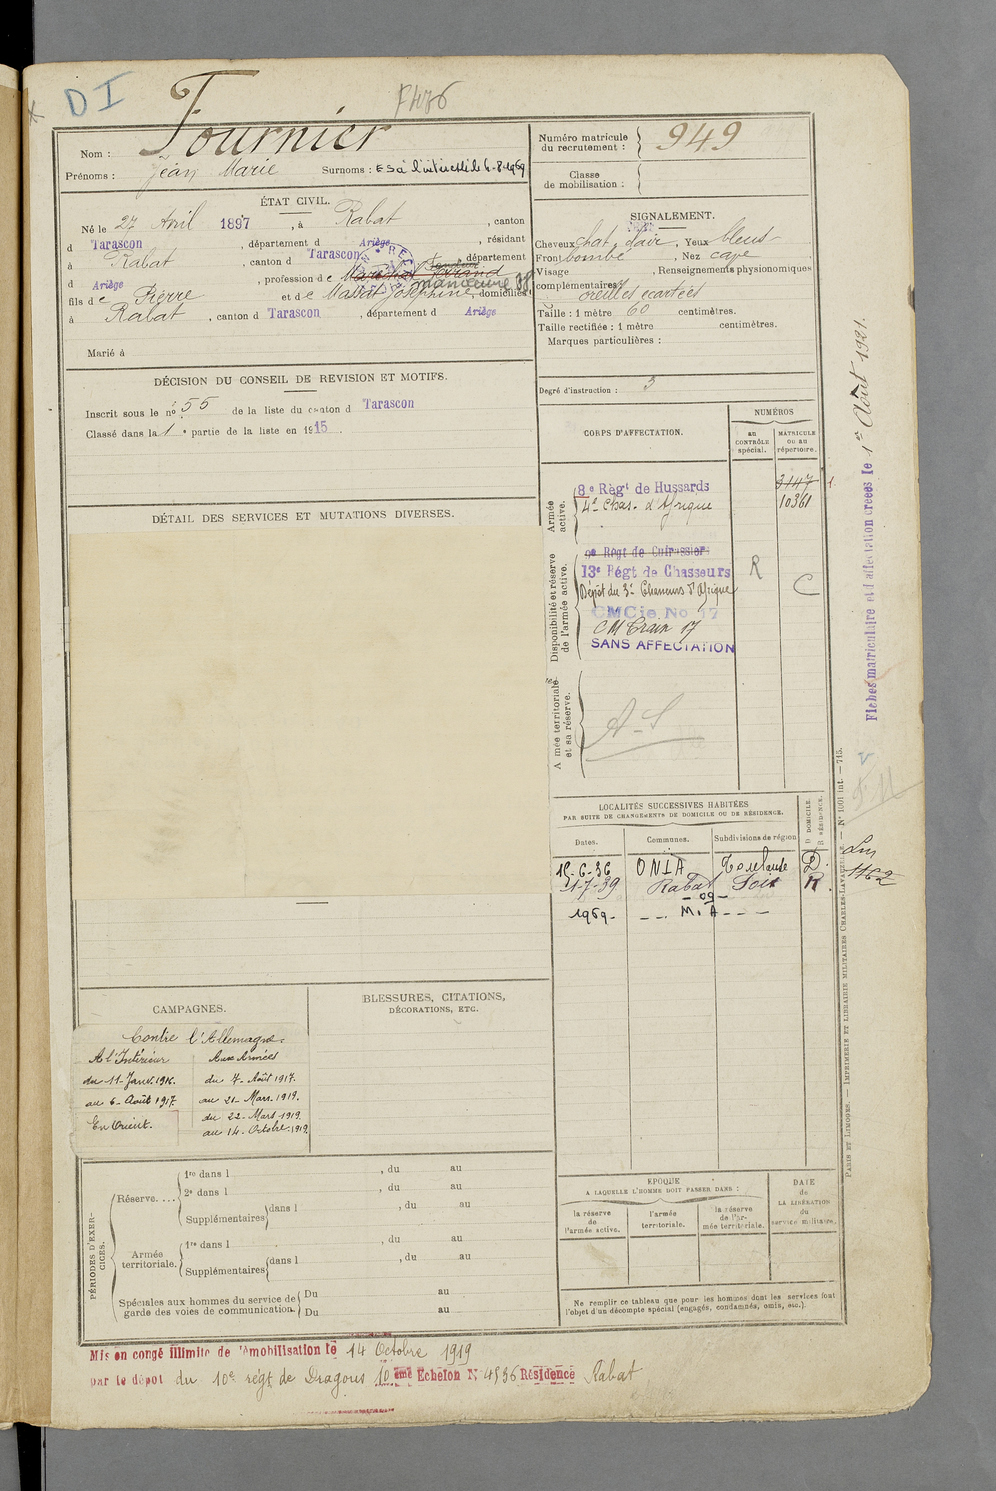 D I
F 436
Nom : Fournier
Prénoms : Jean Marie Surnoms :
Numéro matricule du recrutement : 949
Classe de mobilisation :
ÉTAT CIVIL.
Né le 27 Avril 1897, à Rabat, canton
d Tarascon, département d Ariège, résidant
à Rabat, canton d Tarascon, département
d Ariège, profession de manœuvre
fils de Pierre et de Massat Joséphine, domiciliés
à Rabat, canton d Tarascon, département d Ariège
Marié à
SIGNALEMENT.
Cheveux chat. clair, Yeux bleus
Front bombé, Nez cave
Visage , Renseignements physionomiques
complémentaires : oreilles écartées
Taille : 1 mètre 60 centimètres.
Taille rectifiée : 1 mètre centimètres.
Marques particulières :
Degré d'instruction : 3
DÉCISION DU CONSEIL DE REVISION ET MOTIFS.
Inscrit sous le nº 55 de la liste du canton d Tarascon
Classé dans la 1e partie de la liste en 1915
DÉTAIL DES SERVICES ET MUTATIONS DIVERSES.
CORPS D'AFFECTATION.
NUMÉROS
au CONTRÔLE spécial.
MATRICULE ou au répertoire.
Armée active.
8e Régt de Hussards 3147
4e Chas. d'Afrique 10361
Disponibilité et réserve de l'armée active.
9e Régt de Cuirassiers
13e Régt de Chasseurs R
Dépôt du 3e Chasseurs d'Afrique C
CMCie No 17
CM Train 17
SANS AFFECTATION
Armée territoriale et sa réserve.
A-S
Fiches matriculaire et d'affectation créées le 1er Août 1921.
LOCALITÉS SUCCESSIVES HABITÉES
PAR SUITE DE CHANGEMENTS DE DOMICILE OU DE RÉSIDENCE.
Dates. Communes. Subdivisions de région
D DOMICILE.
R RÉSIDENCE.
15-6-36 ONIA Toulouse D.
1-7-39 Rabat Foix R.
- 09 -
1969 - - - M. A - - -
1162
CAMPAGNES.
Contre l'Allemagne.
A l'Intérieur
du 11 Janv. 1916.
au 6 Août 1917.
En Orient.
Aux Armées
du 7 Août 1917.
au 21 Mars 1919.
du 22 Mars 1919.
au 14 Octobre 1919.
BLESSURES, CITATIONS,
DÉCORATIONS, ETC.
PÉRIODES D'EXERCICES.
Réserve....
1re dans l , du au
2e dans l , du au
Supplémentaires dans l , du au
Armée territoriale.
1re dans l , du au
Supplémentaires dans l , du au
Spéciales aux hommes du service de garde des voies de communication.
Du au
Du au
ÉPOQUE
A LAQUELLE L'HOMME DOIT PASSER DANS :
la réserve de l'armée active.
l'armée territoriale.
la réserve de l'armée territoriale.
DATE de LA LIBÉRATION du service militaire.
Ne remplir ce tableau que pour les hommes dont les services font
l'objet d'un décompte spécial (engagés, condamnés, omis, etc.).
PARIS ET LIMOGES. — IMPRIMERIE ET LIBRAIRIE MILITAIRES CHARLES-LAVAUZELLE. — Nº 1001 int. — 715.
Mis en congé illimité de démobilisation le 14 Octobre 1919
par le dépôt du 10e régt de Dragons 10 ème Echelon Nº 4936 Résidence Rabat